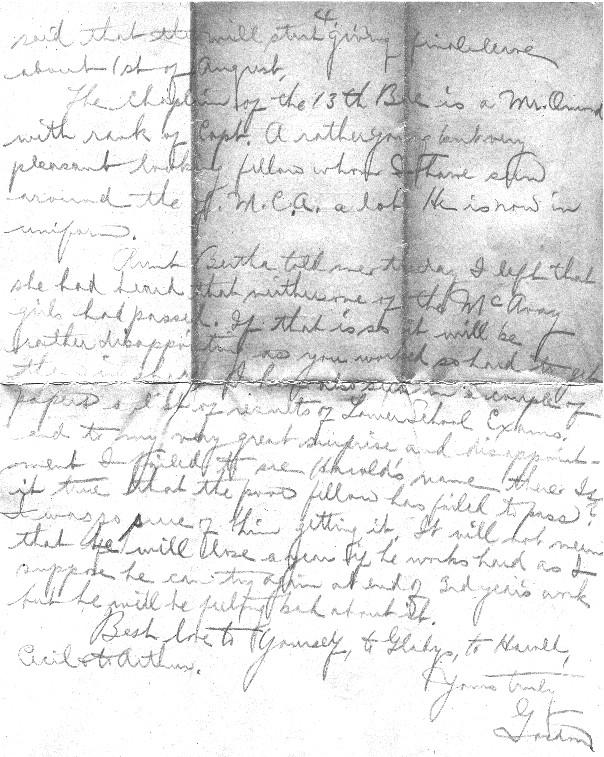 4.
said that they will start giving final leave
about 1st of August.
The Chaplain of the 13th Bde is a Mr.
with rank of Capt. A rather young but very
pleasant looking fellow whom I have seen
around the Y.M.C.A. a lot. He is now in
uniform.
Aunt Bertha told me the day I left that
she had heard that neither one of the McAvay
girls had passed. If that is so it will be
rather disappointing as you worked so hard to get
them I have also seen in a couple of
papers a list of results of Lower School Exams.
and to my very great surprise and disappoint-
ment I failed to see Harold's name there. Is
it true that the poor fellow has failed to pass?
I was so sure of him getting it. It will not mean
that he will lose a year if he works hard as I
suppose he can try again at end of 3rd year's work
but he will be feeling bad about it.
Best love to Yourself, to Gladys, to Harold,
Cecil & to Arthur.
Yours truly
Gordon